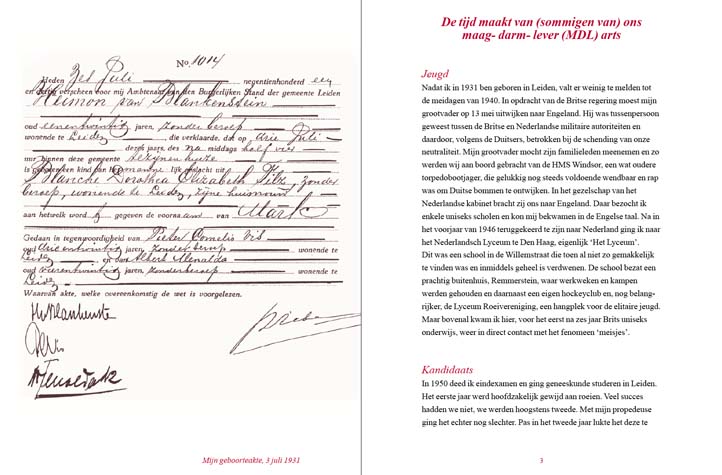 No. 1014
Heden Zes Juli negentienhonderd een
en dertig verscheen voor mij Ambtenaar van den Burgerlijken Stand der gemeente Leiden
Heimon van Blankenstein
oud eenentwintig jaren, zonder beroep,
wonende te Leiden, die verklaarde, dat op drie Juli
dezes jaars, des na middags half vier
uur binnen deze gemeente
is geboren een kind van mannelijk geslacht uit
Blanche Dorothea Elizabeth Filz, zonder
beroep, wonende te Leiden, zijne huisvrouw
aan hetwelk word gegeven de voornaam van Mark
Gedaan in tegenwoordigheid van Pieter Cornelis Vis
oud drie en jaren, zonder beroep wonende te
Leiden en van Albert
oud jaren, zonder beroep wonende te
Leiden
Waarvan akte, welke overeenkomstig de wet is voorgelezen.
Mijn geboorteakte, 3 juli 1931
De tijd maakt van (sommigen van) ons
maag- darm- lever (MDL) arts
Jeugd
Nadat ik in 1931 ben geboren in Leiden, valt er weinig te melden tot
de meidagen van 1940. In opdracht van de Britse regering moest mijn
grootvader op 13 mei uitwijken naar Engeland. Hij was tussenpersoon
geweest tussen de Britse en Nederlandse militaire autoriteiten en
daardoor, volgens de Duitsers, betrokken bij de schending van onze
neutraliteit. Mijn grootvader mocht zijn familieleden meenemen en zo
werden wij aan boord gebracht van de HMS Windsor, een wat oudere
torpedobootjager, die gelukkig nog steeds voldoende wendbaar en rap
was om Duitse bommen te ontwijken. In het gezelschap van het
Nederlandse kabinet bracht zij ons naar Engeland. Daar bezocht ik
enkele uniseks scholen en kon mij bekwamen in de Engelse taal. Na in
het voorjaar van 1946 teruggekeerd te zijn naar Nederland ging ik naar
het Nederlandsch Lyceum te Den Haag, eigenlijk 'Het Lyceum'.
Dit was een school in de Willemstraat die toen al niet zo gemakkelijk
te vinden was en inmiddels geheel is verdwenen. De school bezat een
prachtig buitenhuis, Remmerstein, waar werkweken en kampen
werden gehouden en daarnaast een eigen hockeyclub en, nog belang-
rijker, de Lyceum Roeivereniging, een hangplek voor de elitaire jeugd.
Maar bovenal kwam ik hier, voor het eerst na zes jaar Brits uniseks
onderwijs, weer in direct contact met het fenomeen 'meisjes'.
Kandidaats
In 1950 deed ik eindexamen en ging geneeskunde studeren in Leiden.
Het eerste jaar werd hoofdzakelijk gewijd aan roeien. Veel succes
hadden we niet, we werden hoogstens tweede. Met mijn propedeuse
ging het echter nog slechter. Pas in het tweede jaar lukte het deze te
3